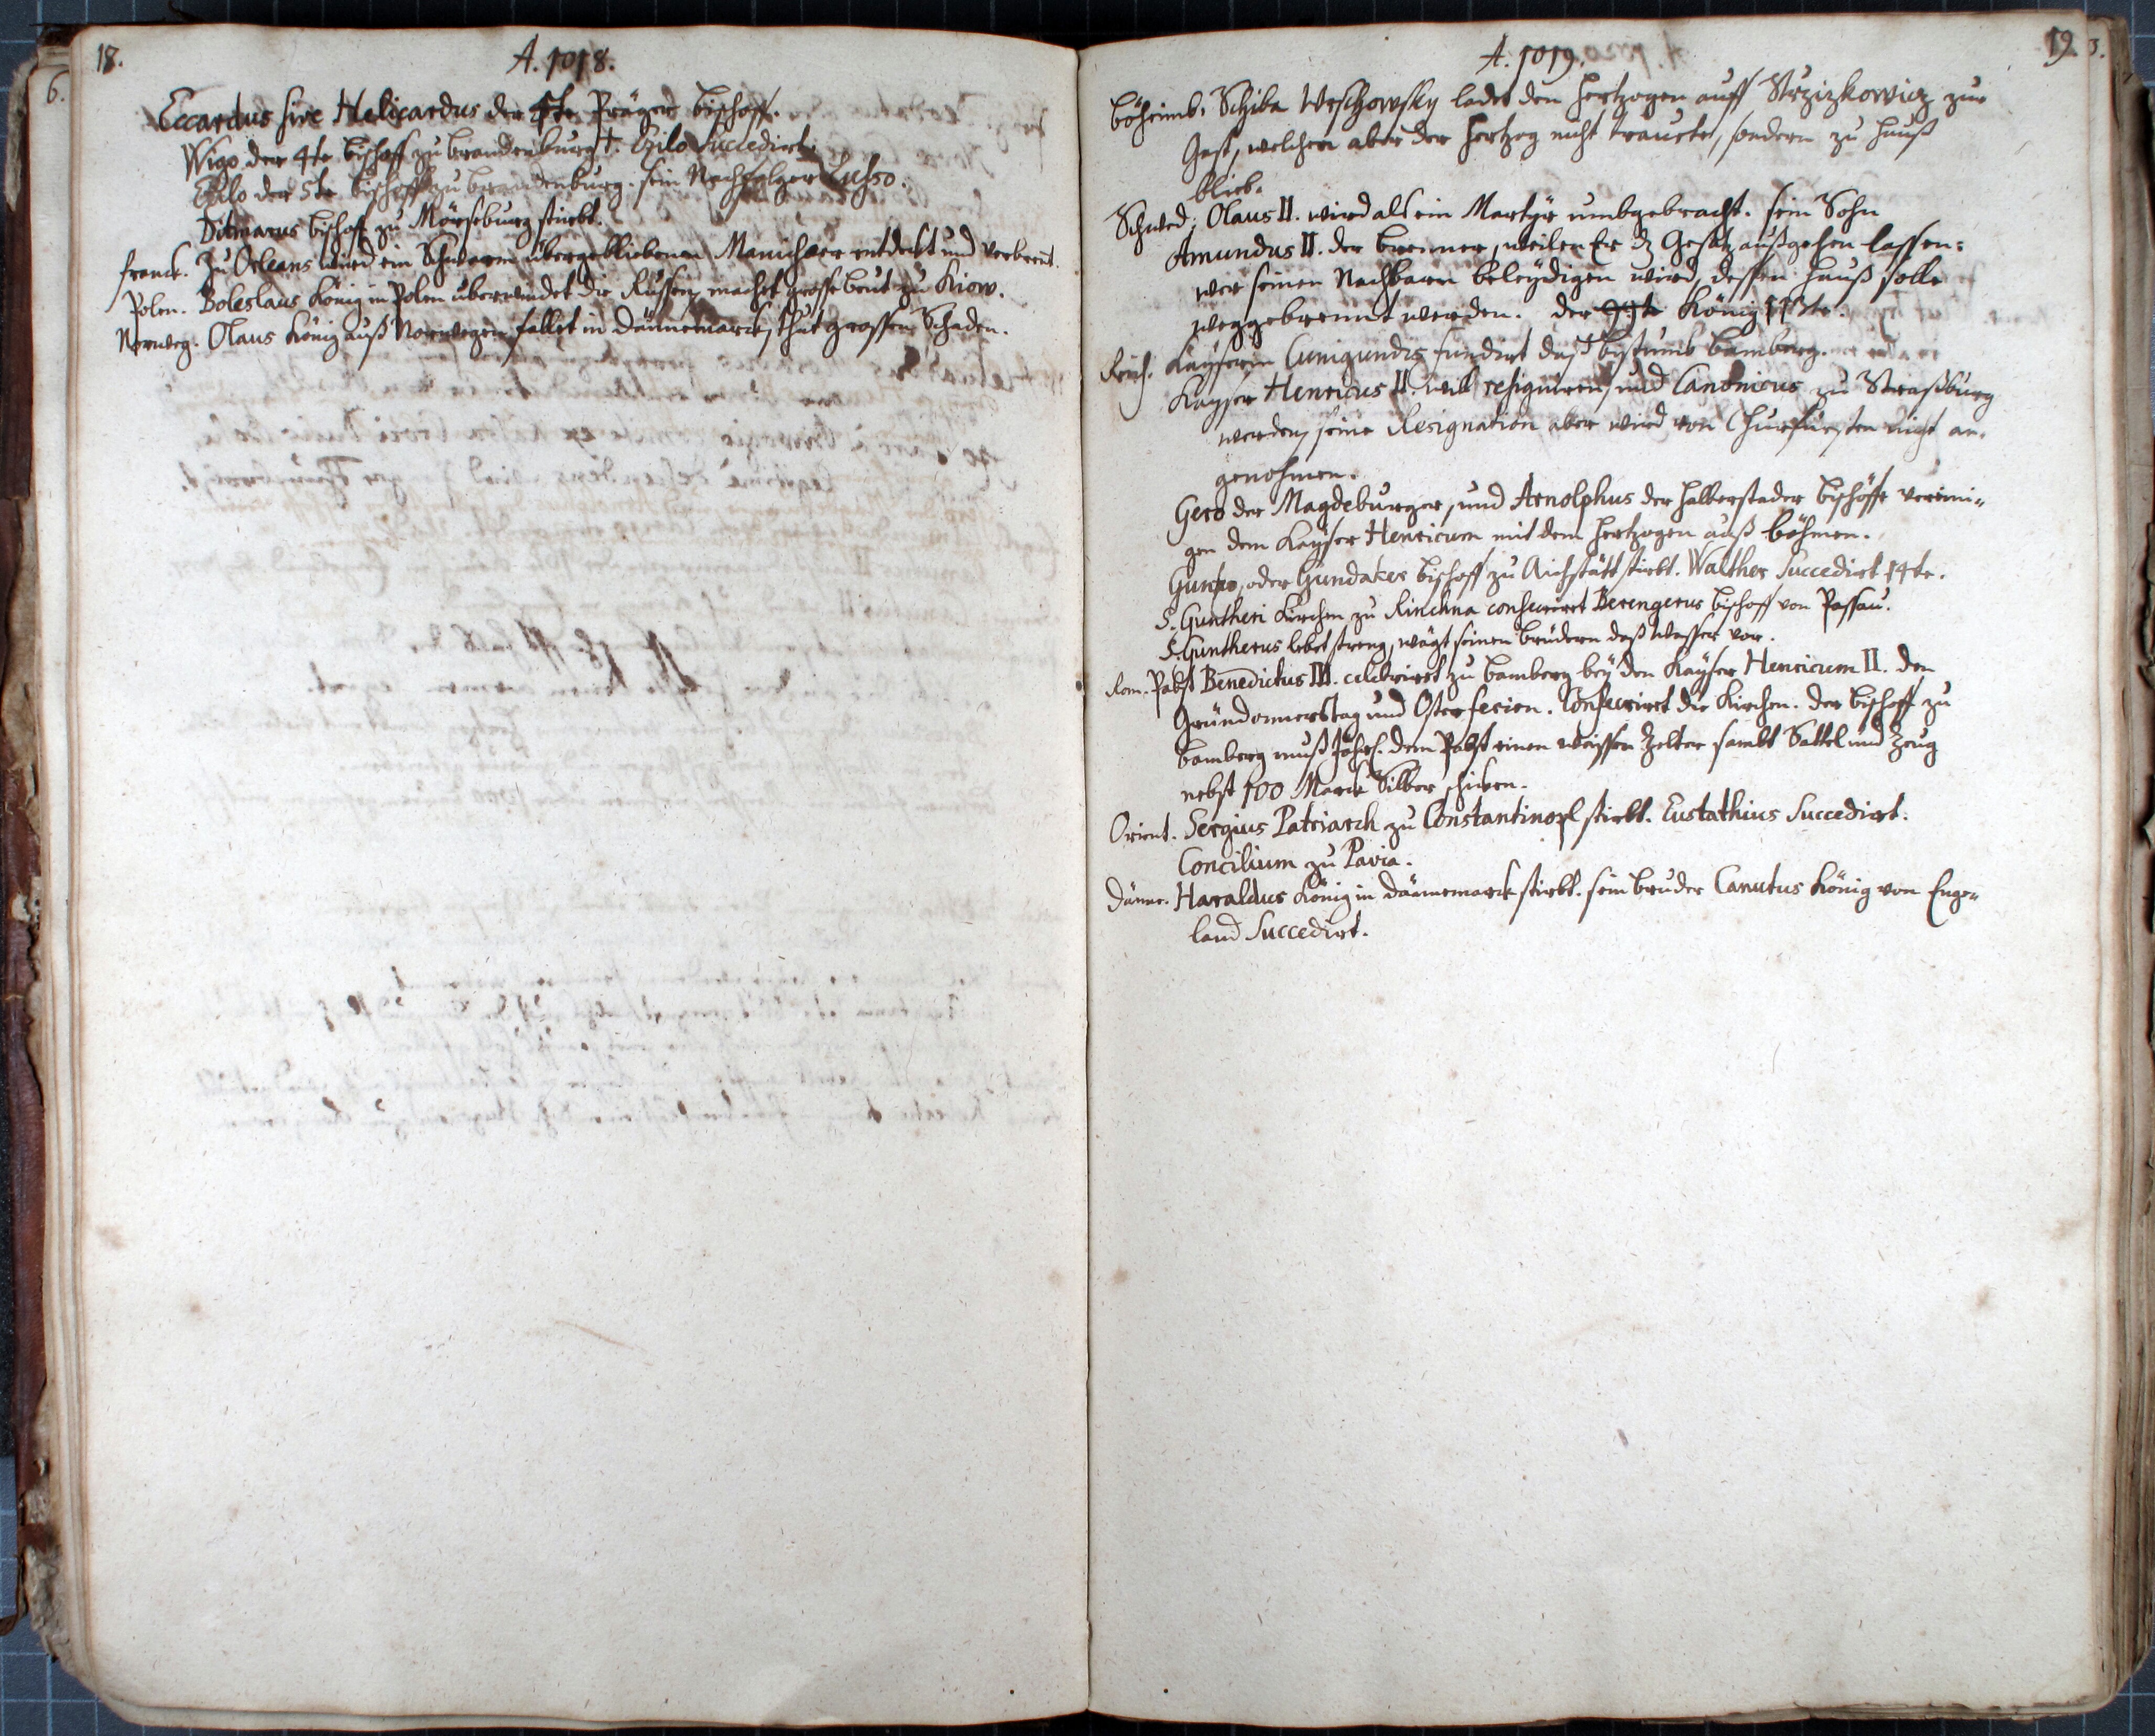 18.
A. 1018.
Eccardus sive Helicardus der 5te Prager bischoff.
Wigo der 4te bischoff zu brandenburg †. Ezilo Succedirt.
Ezilo der 5te bischoff zu brandenburg. sein Nachfolger Luiso.
Ditmarus bischoff zu Mörseburg stirbt.
franck. Zu Orleans wird ein Schwarm übergebliebenen Manichaer entdekt und verbrent.
Polen. Boleslaus König in Polen überwindet die Russen, machet grosse beut zu Kiow.
Norweg. Olaus König auß Norwegen fallet in Dännemarck, thut grossen Schaden.
19.
A. 1019.
böheimb. Schiba Wrschowsky ladet den Hertzogen auff Strzizkowicz zur
Gast, welchem aber der Hertzog nicht trauete, sondern zu Hauß
blieb.
Schwed. Olaus II. wird als ein Martyr umbgebracht. sein Sohn
Amundus II. der brenner, weilen Er dz Gesätz außgehen lassen:
wer seinen Nachbarn beleydigen wird, dessen Hauß solle
weggebrennt werden. der 99te König 113te.
Reich. Kayserin Cunigundis fundirt daß bistumb bamberg.
Kayser Henricus II. will resigniren, und Canonicus zu Straßburg
werden, seine Resignation aber wird von Churfürsten nicht an-
genohmen.
Gero der Magdeburger, und Arnolphus der Halberstader bischöffe vereini-
gen dem Kayser Henricum mit dem Hertzogen auß böhmen.
Gunzo, oder Gundaker bischoff zu Aichstätt stirbt. Walther Succedirt 14te.
S. Guntheri Kirchen zu Rinchna consecrirt Berengerus bischoff von Passau.
S. Guntherus lebet streng, wägt seinen brüdern daß Wasser vor.
Rom. Pabst Benedictus VIII. celebriret zu bamberg bey den Kayser Henricum II. den
Gründonnerstag und Osterferien. Consecriret die Kirchen. der bischoff zu
bamberg muß jährl. dem Pabst einen weissen Zelter sambt Sattel und Zeug
nebst 100 Marck Silber schicken.
Orient. Sergius Patriarch zu Constantinopl stirbt. Eustathius Succedirt.
Concilium zu Pavia.
Dänne. Haraldus König in Dännemarck stirbt. sein bruder Canutus König von Enge-
land Succedirt.